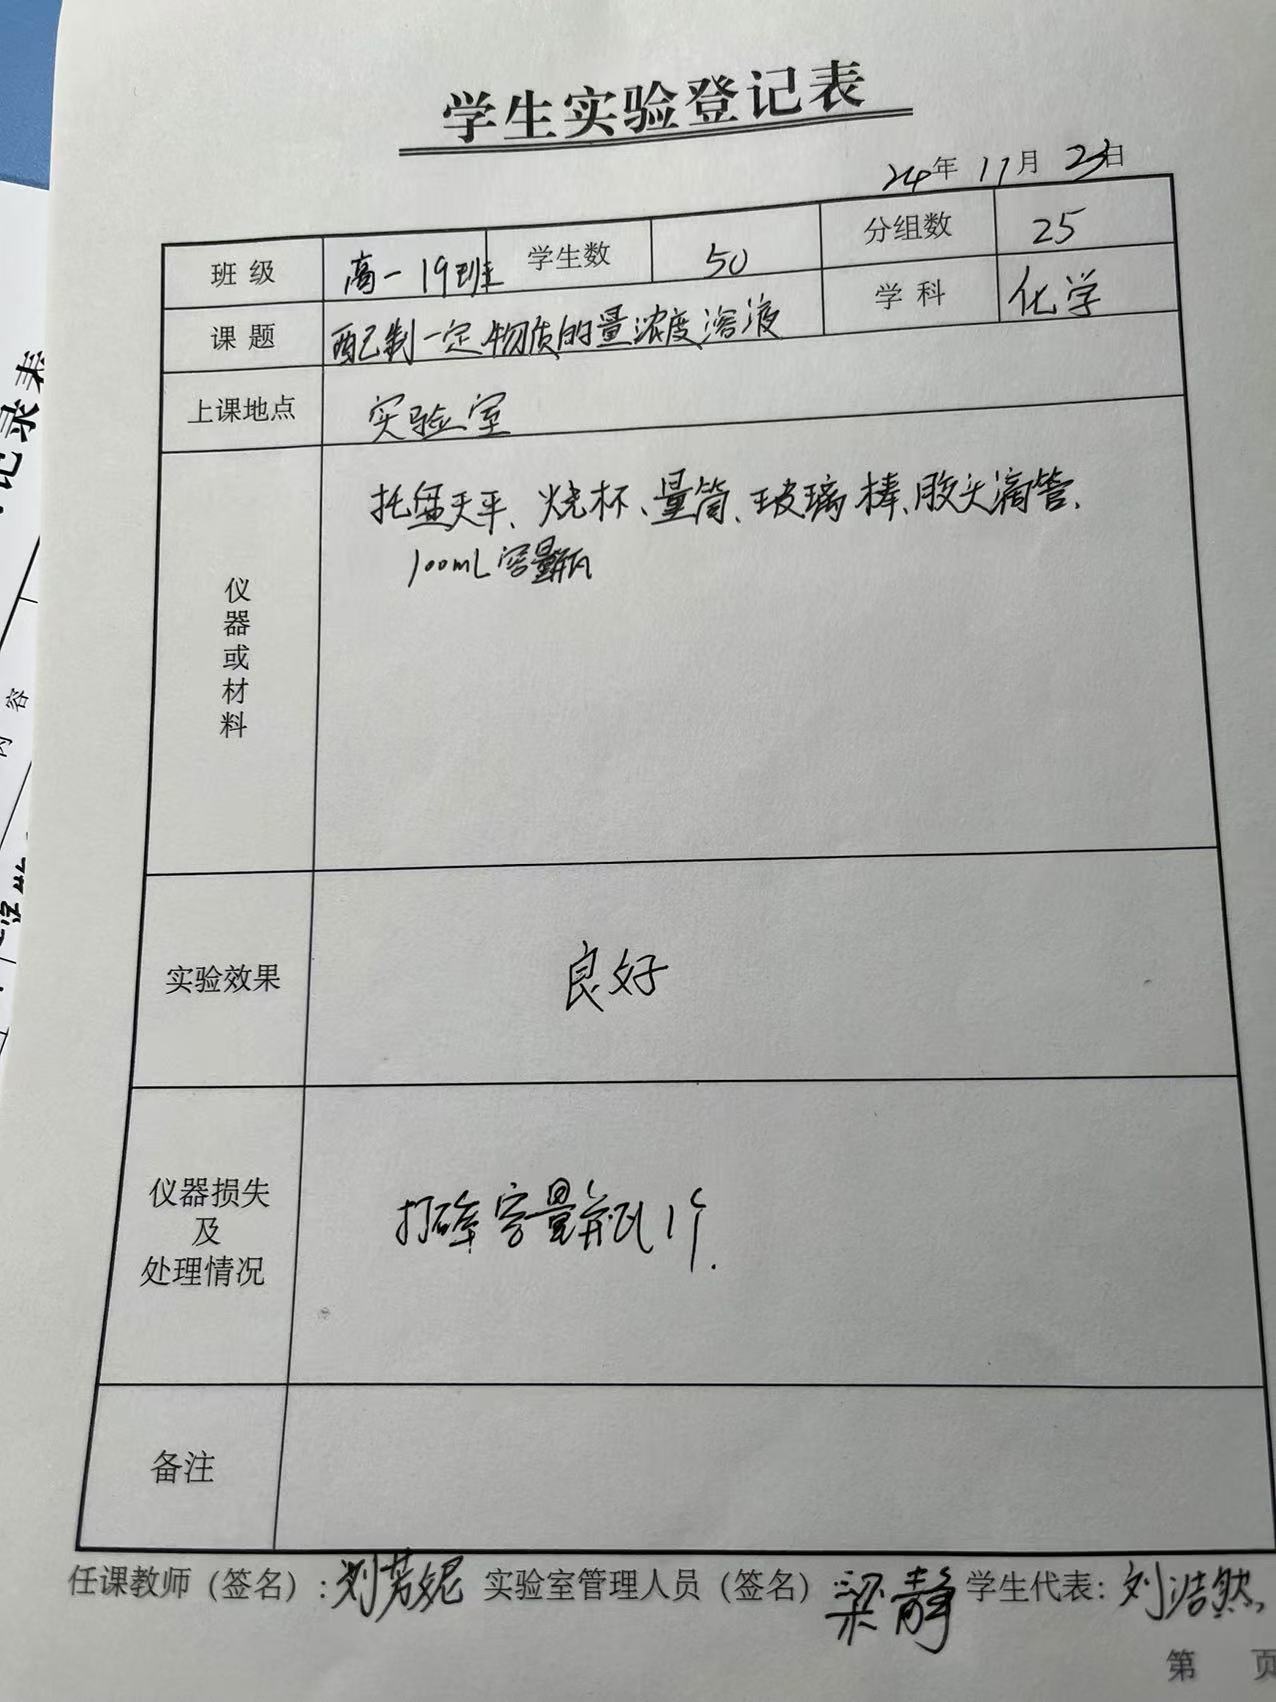 学生实验登记表
24年 11月 23日
班级 高一19班 学生数 50 分组数 25
课题 配制一定物质的量浓度溶液 学科 化学
上课地点 实验室
仪器或材料 托盘天平、烧杯、量筒、玻璃棒、胶头滴管、
100mL容量瓶
实验效果 良好
仪器损失
及
处理情况 打碎容量瓶1个.
备注
任课教师（签名）: 刘芳妮 实验室管理人员（签名） 梁静 学生代表: 刘浩然
第 页
记录表
内容